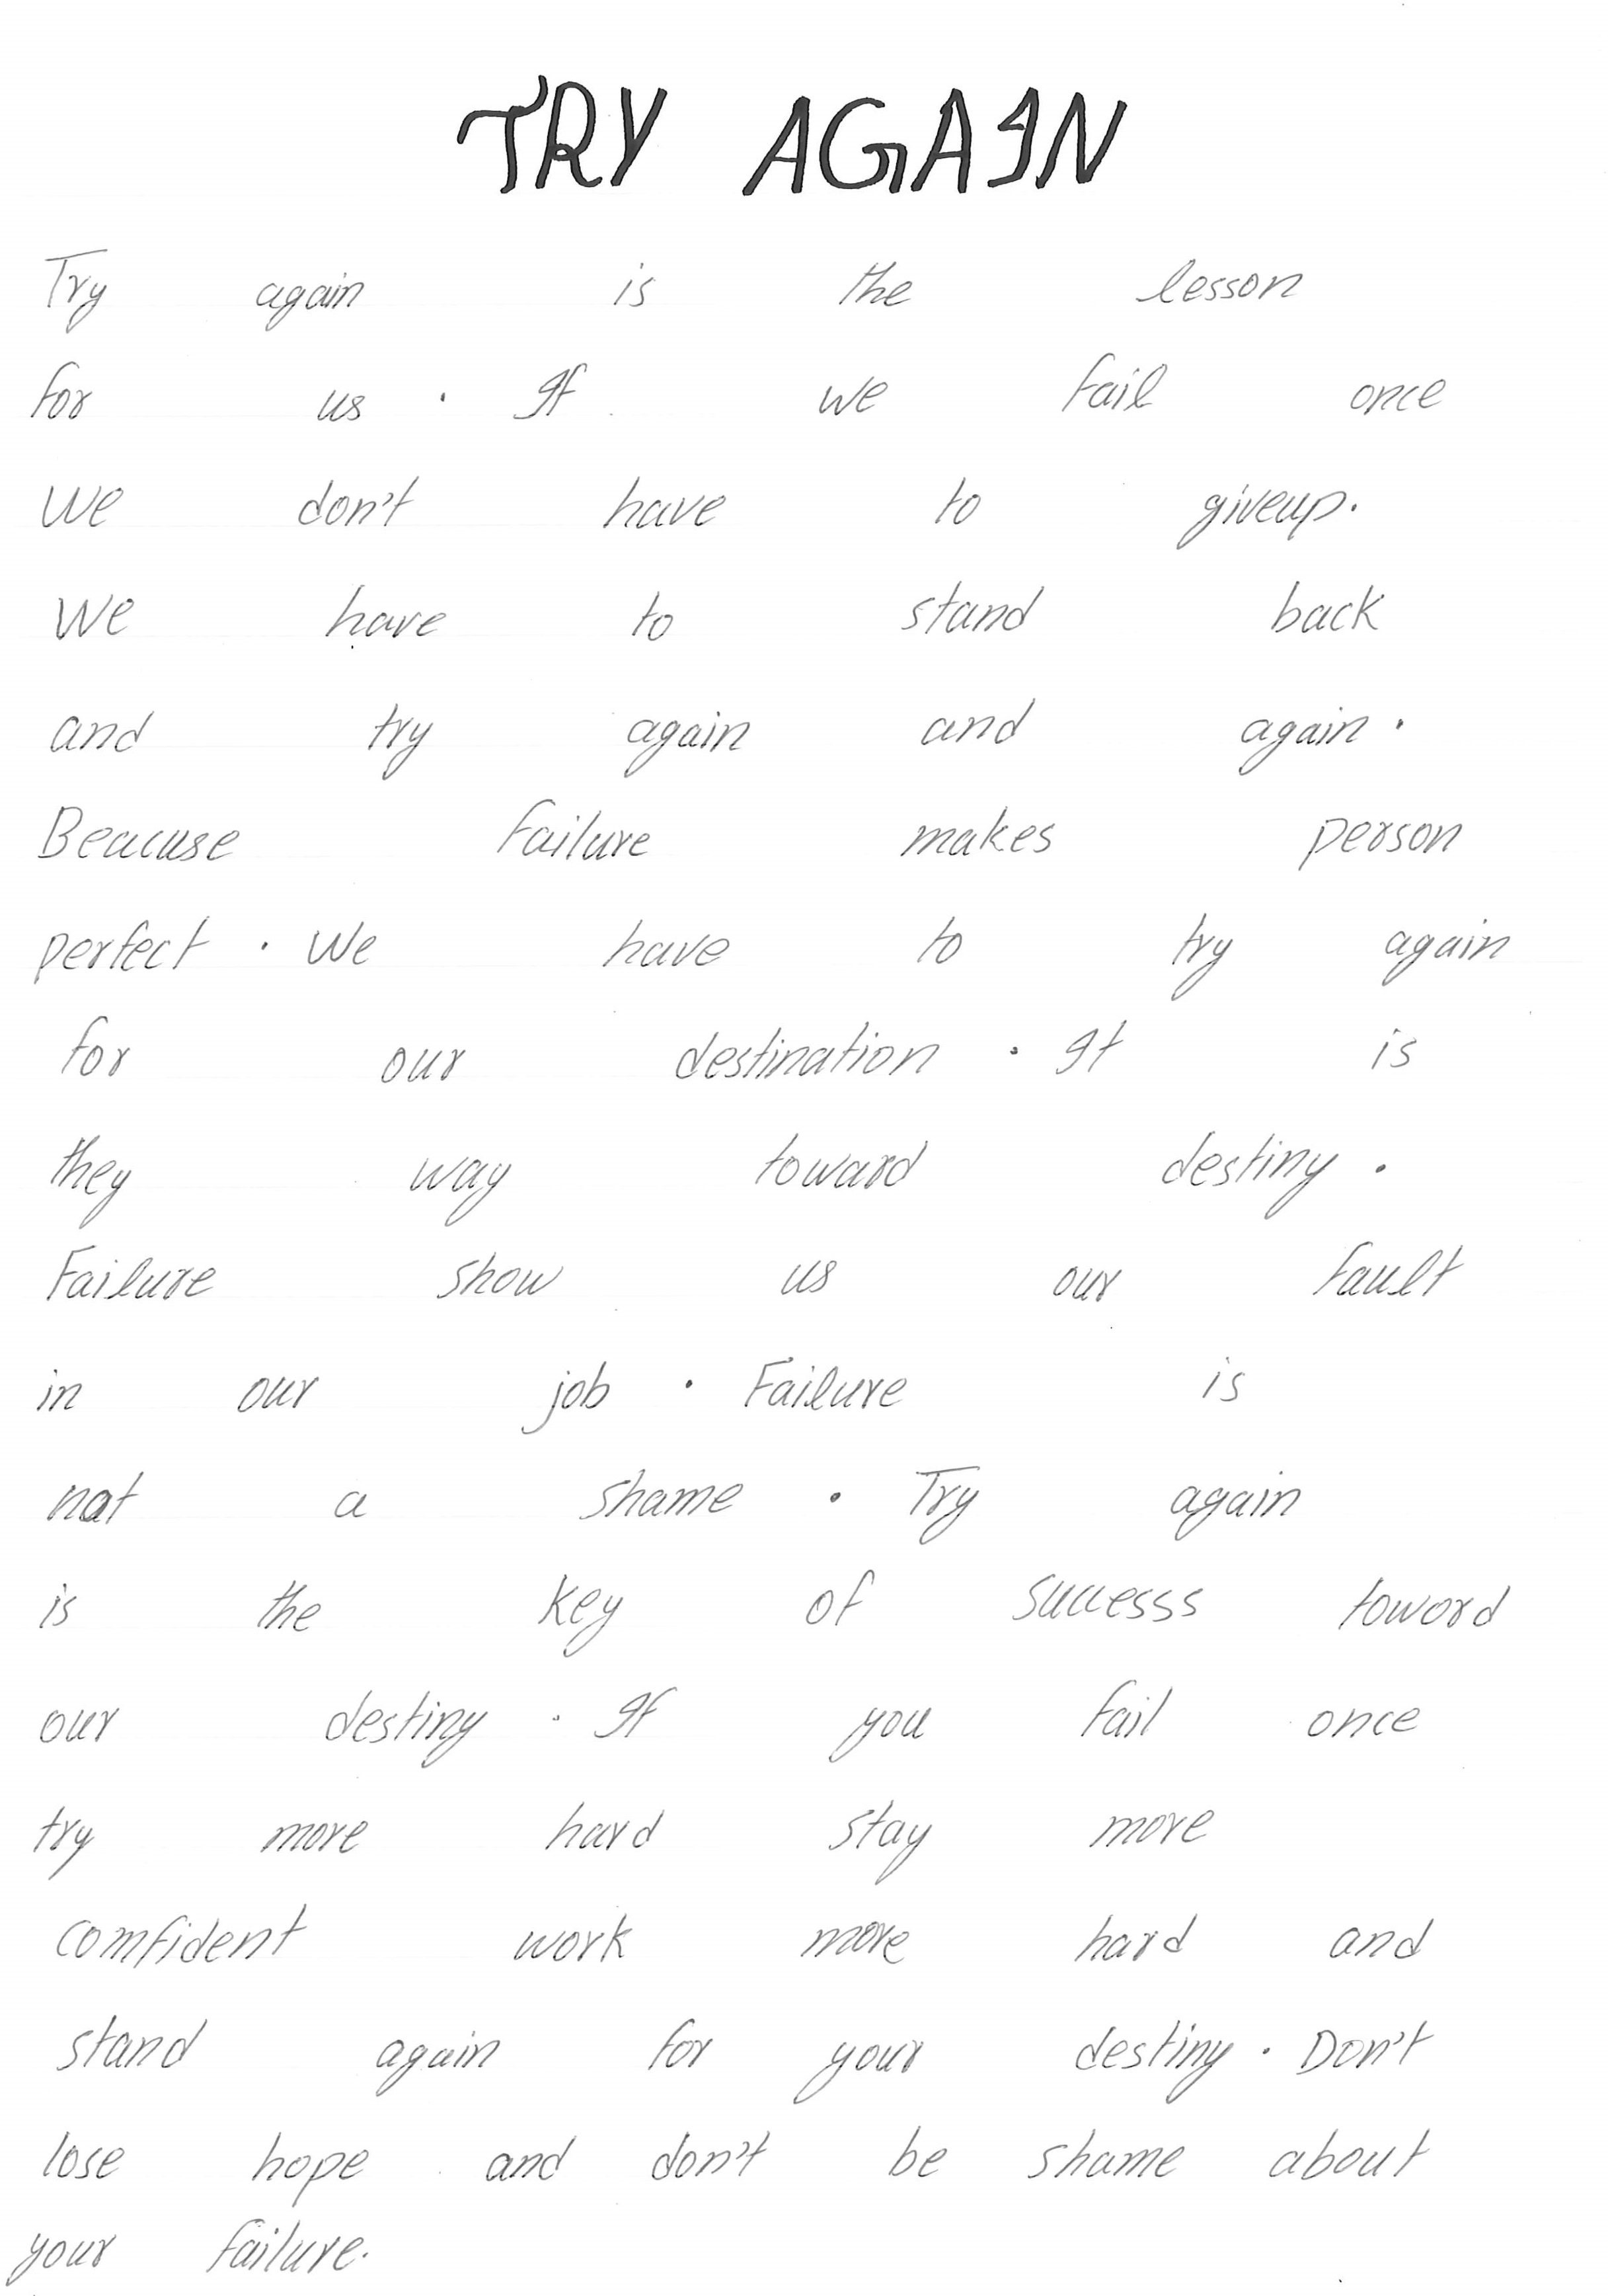 TRY AGAIN
Try again is the lesson
for us . If we fail once
we don't have to giveup.
We have to stand back
and try again and again .
Beacuse failure makes person
perfect . We have to try again
for our destination . It is
they way toward destiny .
Failure show us our fault
in our job . Failure is
not a shame . Try again
is the key of successs toword
our destiny . If you fail once
try more hard stay more
comfident work more hard and
stand again for your destiny . Don't
lose hope and don't be shame about
your failure.